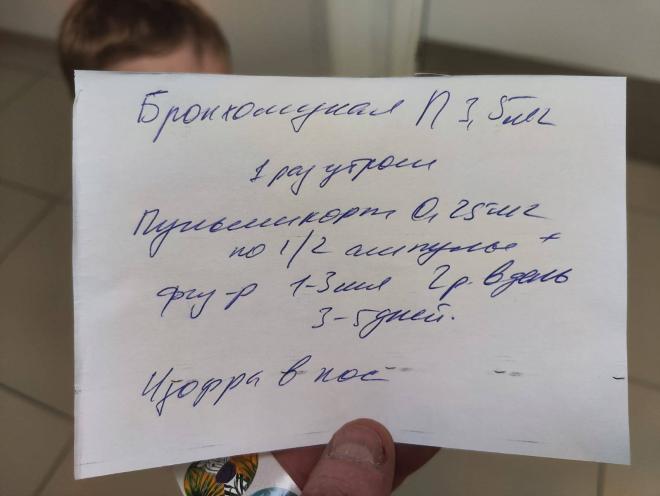 Бронхомунал П 3,5мг
1 раз утром
Пульмикорт 0,25мг
по 1/2 ампулы +
физ-р 1-3мл 2р. в день
3-5 дней.
Изофра в нос